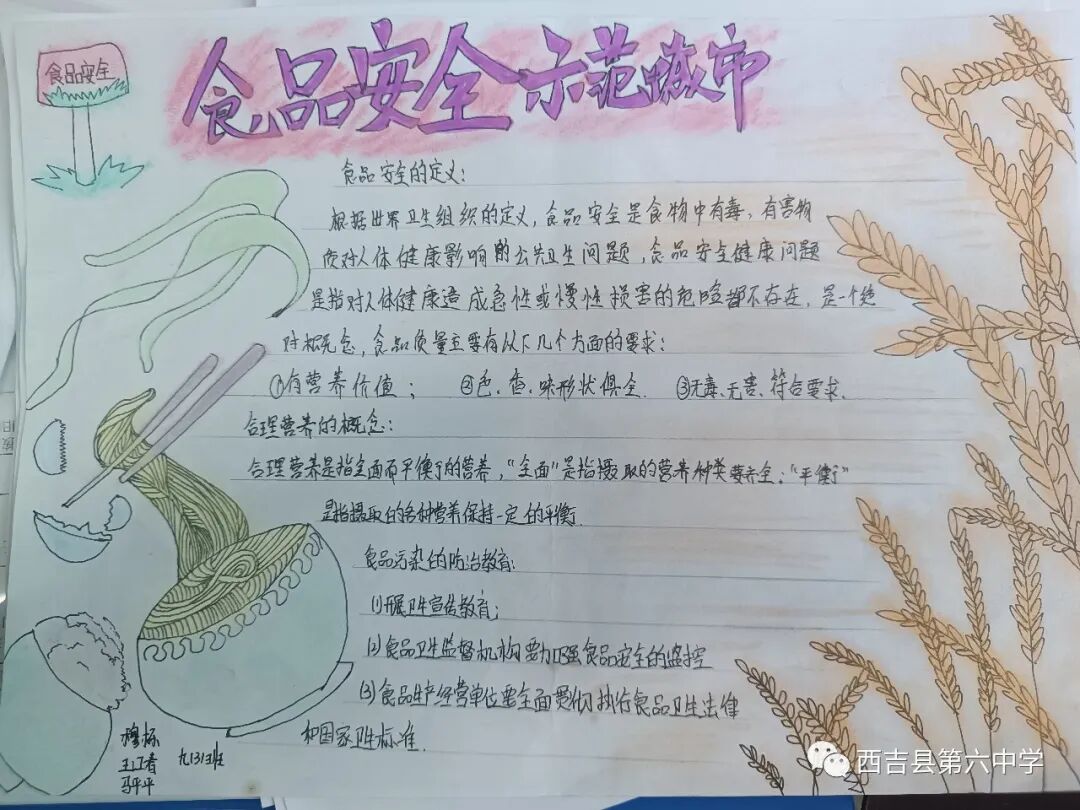 食品安全
食品安全示范城市
食品安全的定义：
根据世界卫生组织的定义，食品安全是食物中有毒，有害物
质对人体健康影响的公共卫生问题，食品安全健康问题
是指对人体健康造成急性或慢性损害的危险都不存在，是一个绝
对概念，食品质量主要有以下几个方面的要求：
①有营养价值；　②色、香、味形状俱全　③无毒、无害、符合要求、
合理营养的概念：
合理营养是指全面而平衡的营养，“全面”是指摄取的营养种类要齐全；“平衡”
是指摄取的各种营养保持一定的平衡
食品污染的防治教育：
(1)开展卫生宣传教育；
(2)食品卫生监督机构要加强食品安全的监控
(3)食品生产经营单位要全面贯彻执行食品卫生法律
和国家卫生标准．
马平平
西吉县第六中学